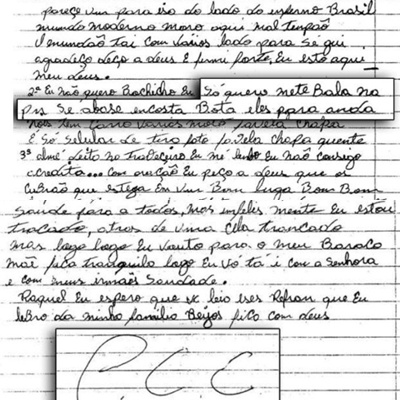 pareçe vim para iso do lado do inferno Brasil
mundo moderno moro aqui mal tenpão
O mundão tai com varios lado para Se gui
agradeço deço a deus E firmi forte, Eu estó aqui
meu deus.
2ª Eu não quero Bochicho Eu Só quero mete Bala no
pns Se abase encosta Bota eles ppara anda
nois ten faro varios moto favela chapa
É Só Selular de tiro foto favela chapa quente
3ª almé deito no traveçeiro Eu me lenbo Eu não consigo
acredita... com oração Eu peço a deus que os
que estega Em Um Bom luga Bom Bom
Saúde para a todos, mas infelis mente Eu estou
tracado, atros de uma Cela trancada
mas logo logo Eu vouto para o meu Baraco
mãe fica tranquila logo Eu Vó tá i com a Senhora
e com meus irmãos Saudade.
Raquel Eu espero que vc leio Eses Refran que Eu
lebro da minha familia Beijos fico com deus
PCC